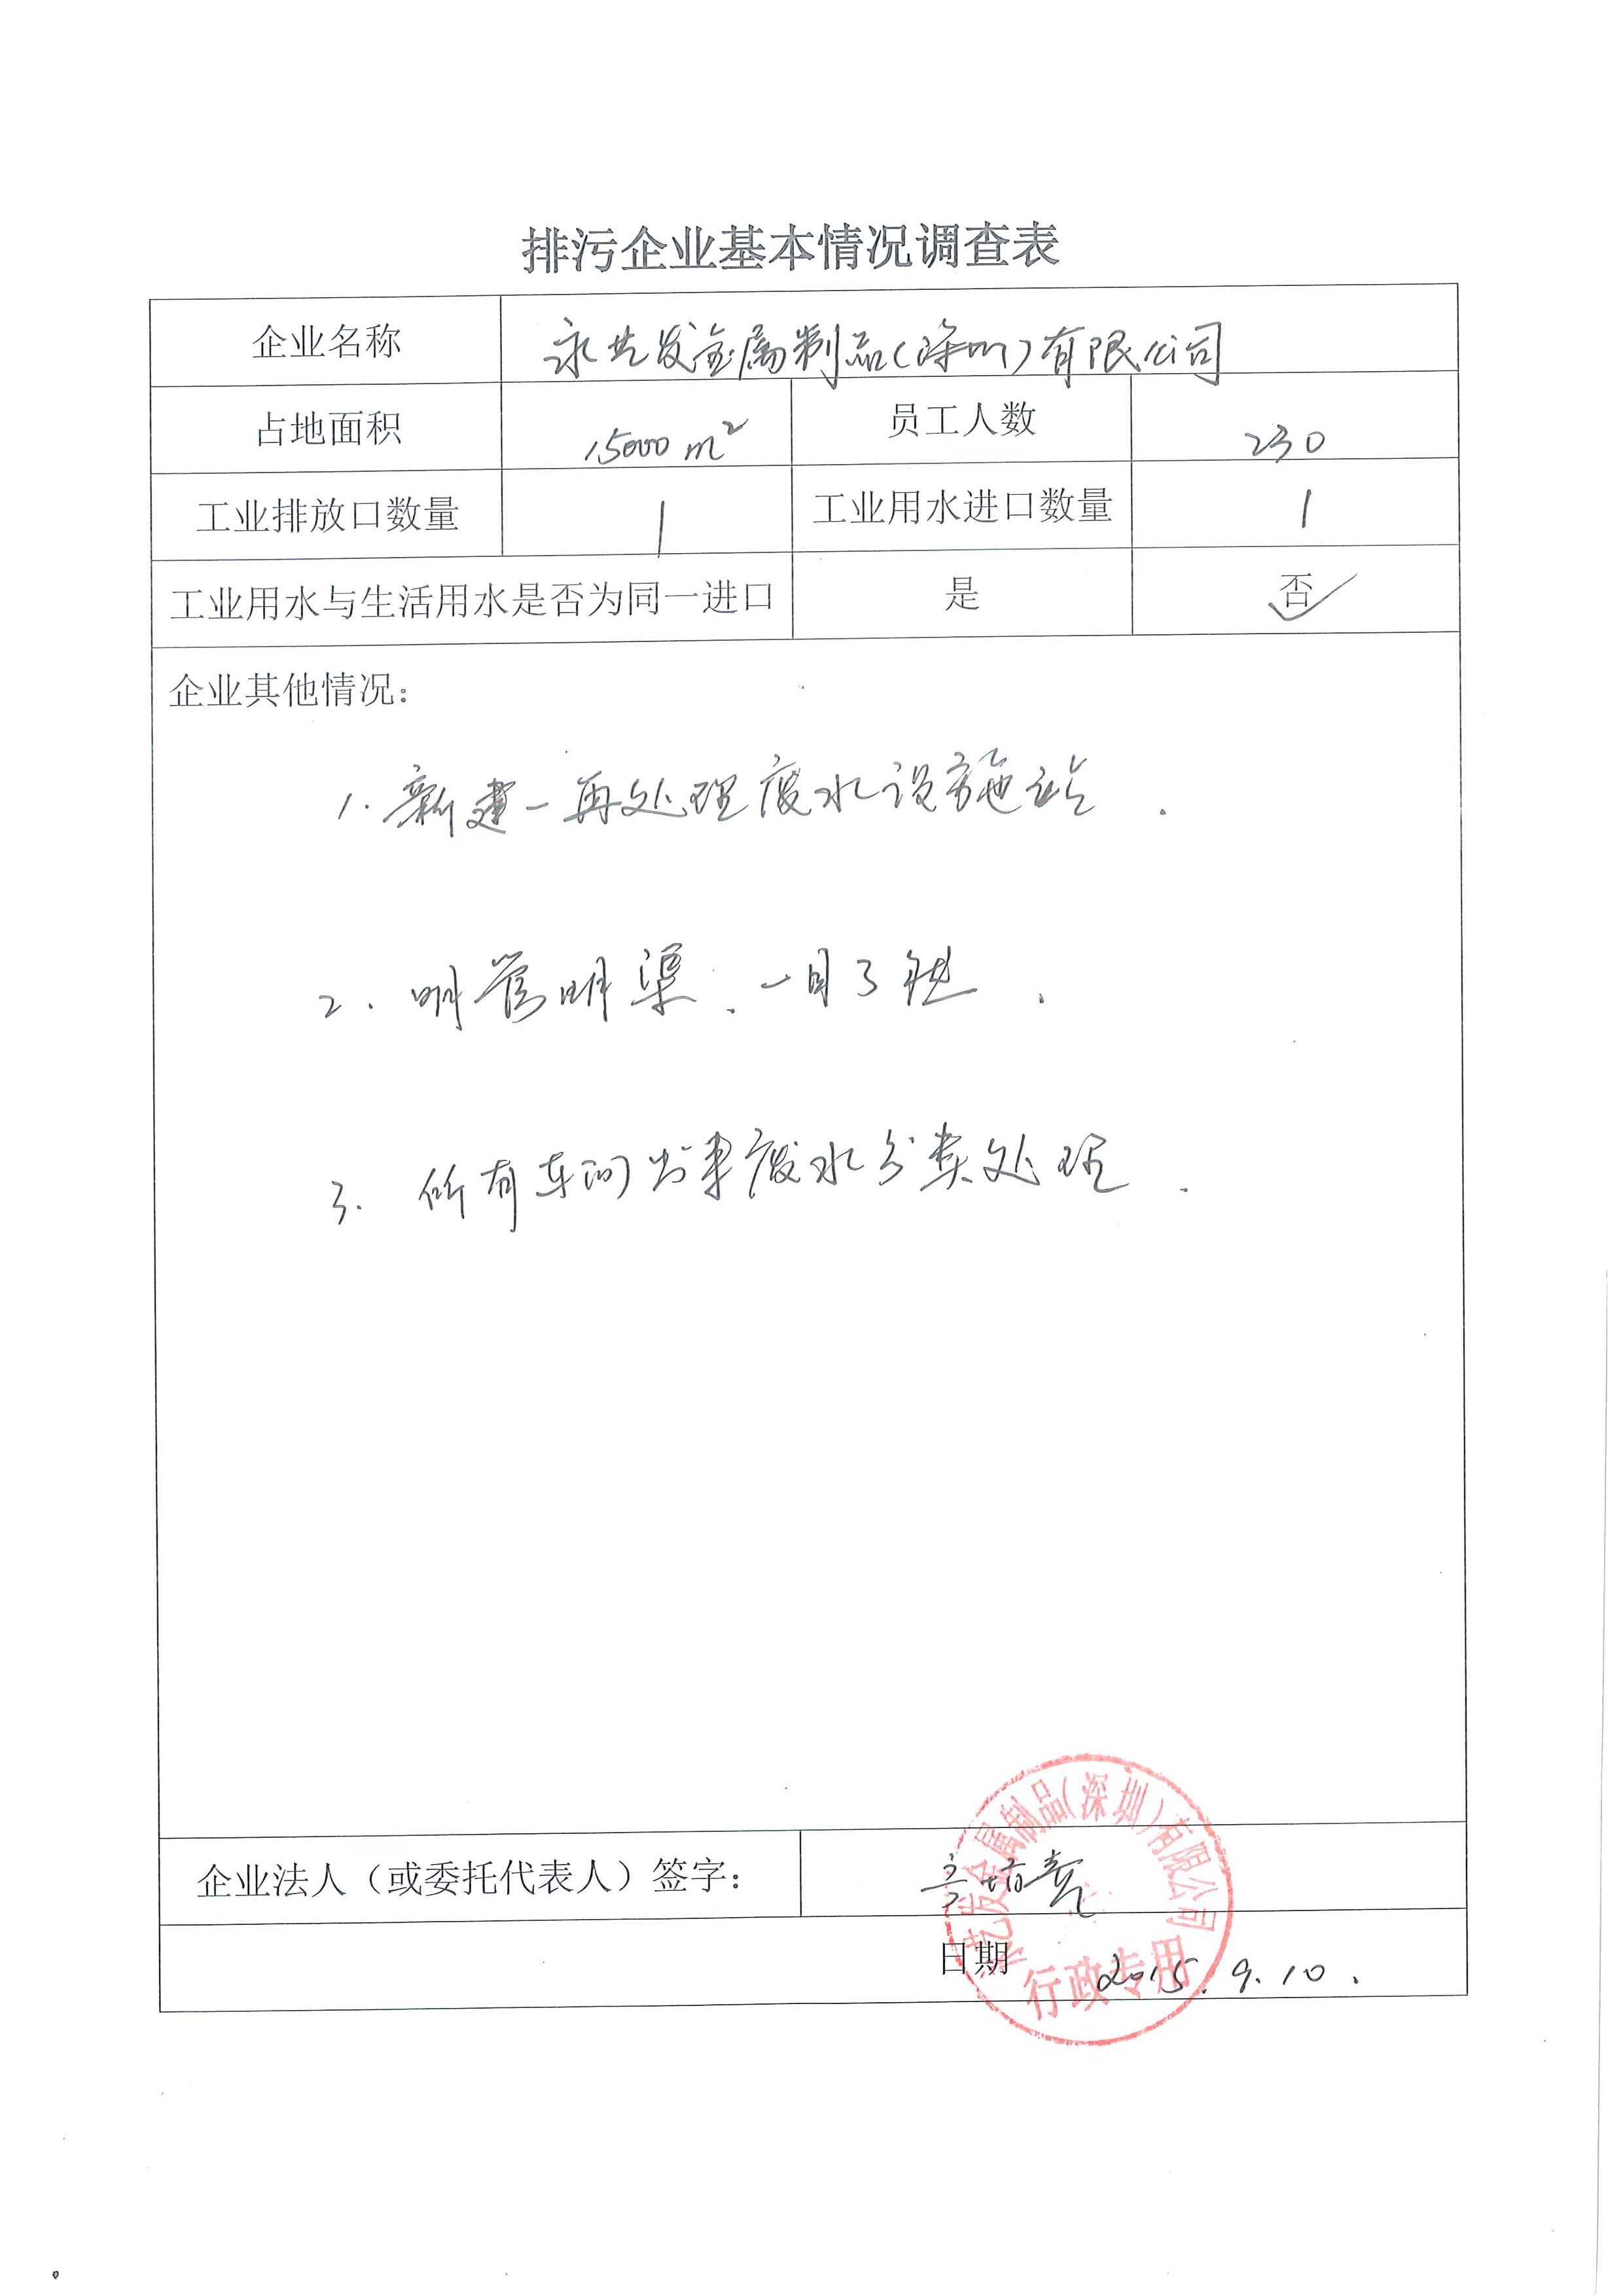 排污企业基本情况调查表
企业名称 永艺发金属制品(深圳)有限公司
占地面积 15000 m² 员工人数 230
工业排放口数量 1 工业用水进口数量 1
工业用水与生活用水是否为同一进口 是 否 ✓
企业其他情况：
1. 新建一再处理废水设施站.
2. 明管明渠、一目了然.
3. 所有车间出来废水分类处理.
永艺发金属制品(深圳)有限公司
企业法人（或委托代表人）签字：
日期 2015.9.10.
行政专用